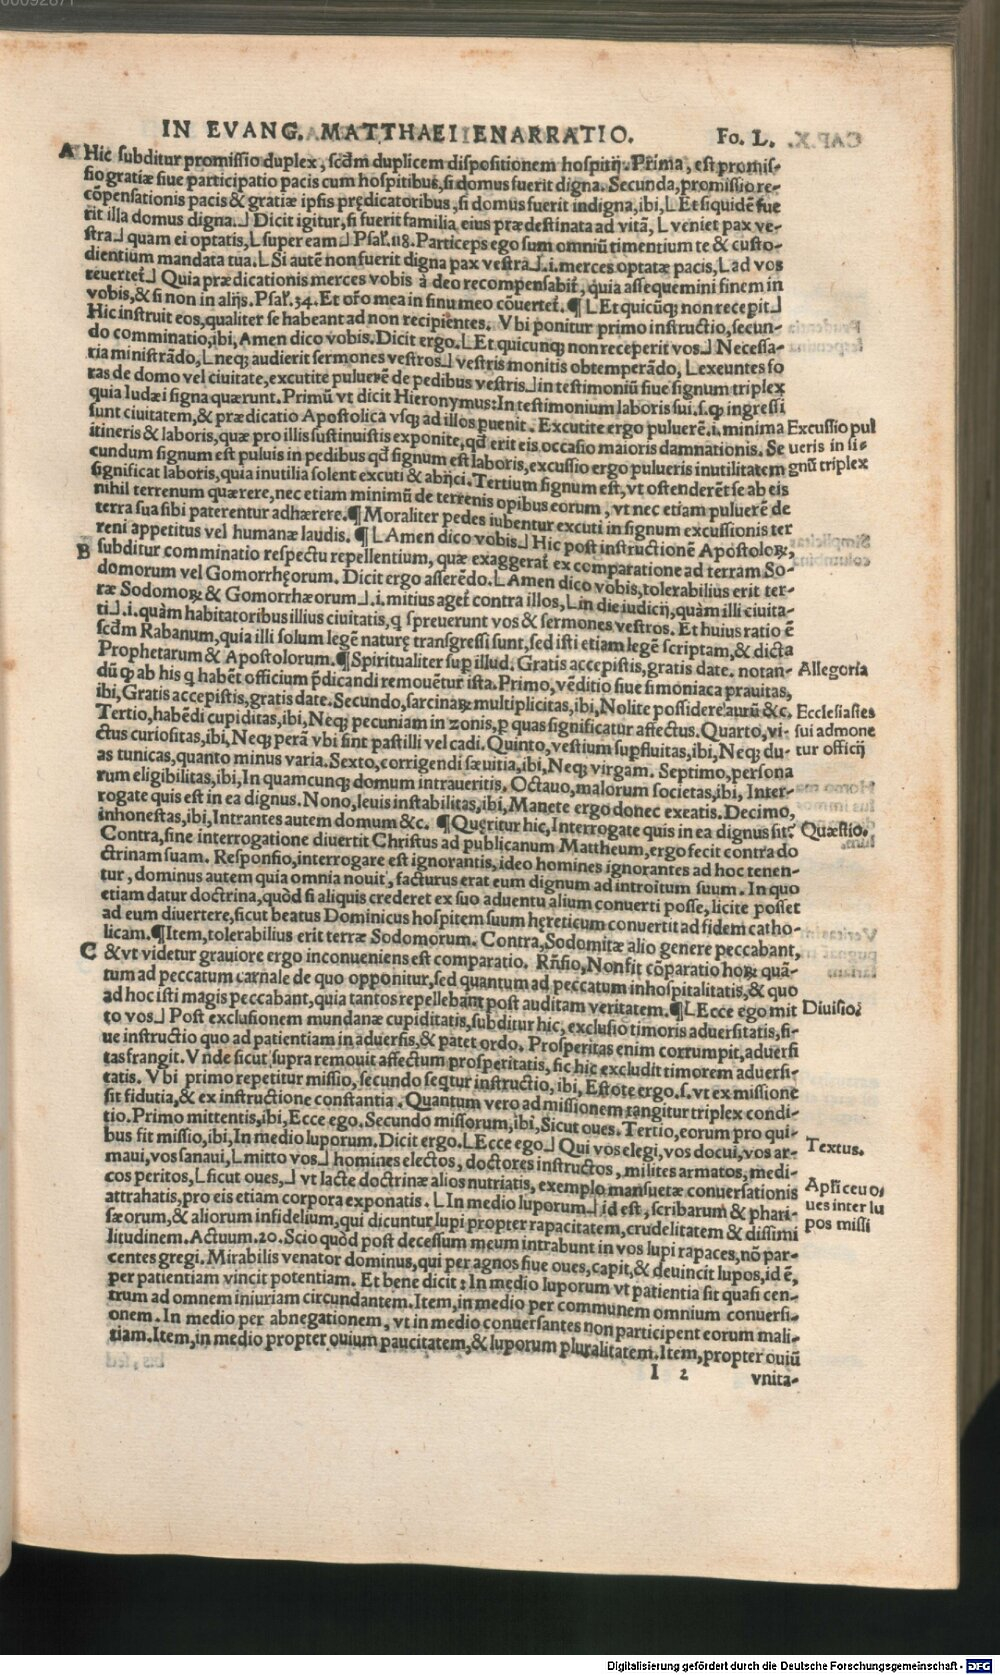 IN EVANG. MATTHAEI ENARRATIO. Fo. L.
A Hic subditur promissio duplex, scdm duplicem dispositionem hospitij. Prima, est promis-
sio gratiæ siue participatio pacis cum hospitibus, si domus fuerit digna. Secunda, promissio re-
cõpensationis pacis & gratiæ ipsis prędicatoribus, si domus fuerit indigna, ibi, L Et siquidẽ fue
rit illa domus digna. ⅃ Dicit igitur, si fuerit familia eius prædestinata ad vitã, L veniet pax ve-
stra ⅃ quam ei optatis, L super eam ⅃ Psal. 118. Particeps ego sum omniũ timentium te & custo-
dientium mandata tua. L Si autẽ non fuerit digna pax vestra ⅃ .i. merces optatæ pacis, L ad vos
reuertet̃ ⅃ Quia prædicationis merces vobis à deo recompensabit̃, quia assequemini finem in
vobis, & si non in alijs. Psal. 34. Et or̃o mea in sinu meo cõuertet̃. ¶ L Et quicũq; non recepit ⅃
Hic instruit eos, qualiter se habeant ad non recipientes. Vbi ponitur primo instructio, secun-
do comminatio, ibi, Amen dico vobis. Dicit ergo. L Et quicunq; non receperit vos ⅃ Necessa-
ria ministrãdo, L neq; audierit sermones vestros ⅃ vestris monitis obtemperãdo, L exeuntes fo
ras de domo vel ciuitate, excutite puluerẽ de pedibus vestris ⅃ in testimoniũ siue signum triplex
quia Iudæi signa quærunt. Primũ vt dicit Hieronymus: In testimonium laboris sui. s. ꝙ ingressi
sunt ciuitatem, & prædicatio Apostolica vsq; ad illos puenit. Excutite ergo puluerẽ .i. minima
itineris & laboris, quæ pro illis sustinuistis exponite, qd erit eis occasio maioris damnationis. Se
cundum signum est puluis in pedibus qd signum est laboris, excussio ergo pulueris inutilitatem
significat laboris, quia inutilia solent excuti & abijci. Tertium signum est, vt ostenderẽt se ab eis
nihil terrenum quærere, nec etiam minimũ de terrenis opibus eorum, vt nec etiam puluerẽ de
terra sua sibi paterentur adhærere. ¶ Moraliter pedes iubentur excuti in signum excussionis ter
reni appetitus vel humanæ laudis. ¶ L Amen dico vobis ⅃ Hic post instructionẽ Apostoloꝝ,
B subditur comminatio respectu repellentium, quæ exaggerat̃ ex comparatione ad terram So-
domorum vel Gomorrhęorum. Dicit ergo asserẽdo. L Amen dico vobis, tolerabilius erit ter-
ræ Sodomoꝝ & Gomorrhæorum ⅃ .i. mitius aget̃ contra illos, L in die iudicij, quàm illi ciuita-
ti ⅃ .i. quàm habitatoribus illius ciuitatis, q spreuerunt vos & sermones vestros. Et huius ratio ẽ
scdm Rabanum, quia illi solum legẽ naturę transgressi sunt, sed isti etiam legẽ scriptam, & dicta
Prophetarum & Apostolorum. ¶ Spiritualiter sup illud. Gratis accepistis, gratis date. notan-
dũ ꝙ ab his q habẽt officium p̃dicandi remouẽtur ista. Primo, vẽditio siue simoniaca prauitas,
ibi, Gratis accepistis, gratis date. Secundo, sarcinaꝝ multiplicitas, ibi, Nolite possidere aurũ &c.
Tertio, habẽdi cupiditas, ibi, Neq; pecuniam in zonis, p quas significatur affectus. Quarto, vi-
ctus curiositas, ibi, Neq; perã vbi sint pastilli vel cadi. Quinto, vestium supfluitas, ibi, Neq; du-
as tunicas, quanto minus varia. Sexto, corrigendi sæuitia, ibi, Neq; virgam. Septimo, persona
rum eligibilitas, ibi, In quamcunq; domum intraueritis. Octauo, malorum societas, ibi, Inter-
rogate quis est in ea dignus. Nono, leuis instabilitas, ibi, Manete ergo donec exeatis. Decimo,
inhonestas, ibi, Intrantes autem domum &c. ¶ Quęritur hic, Interrogate quis in ea dignus sit?
Contra, sine interrogatione diuertit Christus ad publicanum Mattheum, ergo fecit contra do
ctrinam suam. Responsio, interrogare est ignorantis, ideo homines ignorantes ad hoc tenen-
tur, dominus autem quia omnia nouit, facturus erat eum dignum ad introitum suum. In quo
etiam datur doctrina, quòd si aliquis crederet ex suo aduentu alium conuerti posse, licite posset
ad eum diuertere, sicut beatus Dominicus hospitem suum hęreticum conuertit ad fidem catho-
licam. ¶ Item, tolerabilius erit terræ Sodomorum. Contra, Sodomitæ alio genere peccabant,
C & vt videtur grauiore ergo inconueniens est comparatio. Rñsio, Non fit cõparatio hoꝝ quã-
tum ad peccatum carnale de quo opponitur, sed quantum ad peccatum inhospitalitatis, & quo
ad hoc isti magis peccabant, quia tantos repellebant post auditam veritatem. ¶ L Ecce ego mit
to vos ⅃ Post exclusionem mundanæ cupiditatis, subditur hic, exclusio timoris aduersitatis, si-
ue instructio quo ad patientiam in aduersis, & patet ordo. Prosperitas enim corrumpit, aduersi
tas frangit. Vnde sicut supra remouit affectum prosperitatis, sic hic excludit timorem aduersi-
tatis. Vbi primo repetitur missio, secundo seqtur instructio, ibi, Estote ergo. s. vt ex missione
sit fidutia, & ex instructione constantia. Quantum vero ad missionem tangitur triplex condi-
tio. Primo mittentis, ibi, Ecce ego. Secundo missorum, ibi, Sicut oues. Tertio, eorum pro qui-
bus fit missio, ibi, In medio luporum. Dicit ergo. L Ecce ego ⅃ Qui vos elegi, vos docui, vos ar-
maui, vos sanaui, L mitto vos ⅃ homines electos, doctores instructos, milites armatos, medi-
cos peritos, L sicut oues, ⅃ vt lacte doctrinæ alios nutriatis, exemplo mansuetæ conuersationis
attrahatis, pro eis etiam corpora exponatis. L In medio luporum ⅃ id est, scribarum & phari-
sæorum, & aliorum infidelium, qui dicuntur lupi propter rapacitatem, crudelitatem & dissimi
litudinem. Actuum. 20. Scio quòd post decessum meum intrabunt in vos lupi rapaces, nõ par-
centes gregi. Mirabilis venator dominus, qui per agnos siue oues, capit, & deuincit lupos, id ẽ,
per patientiam vincit potentiam. Et bene dicit: In medio luporum vt patientia sit quasi cen-
trum ad omnem iniuriam circundantem. Item, in medio per communem omnium conuersi-
onem. In medio per abnegationem, vt in medio conuersantes non participent eorum mali-
tiam. Item, in medio propter ouium paucitatem, & luporum pluralitatem. Item, propter ouiũ
I 2 vnita-
Excussio pul
ueris in si-
gnũ triplex
Allegoria
Ecclesiastes
sui admone
tur officij
Quæstio.
Diuisio.
Textus.
Apl̃i ceu o-
ues inter lu
pos missi
Digitalisierung gefördert durch die Deutsche Forschungsgemeinschaft - DFG